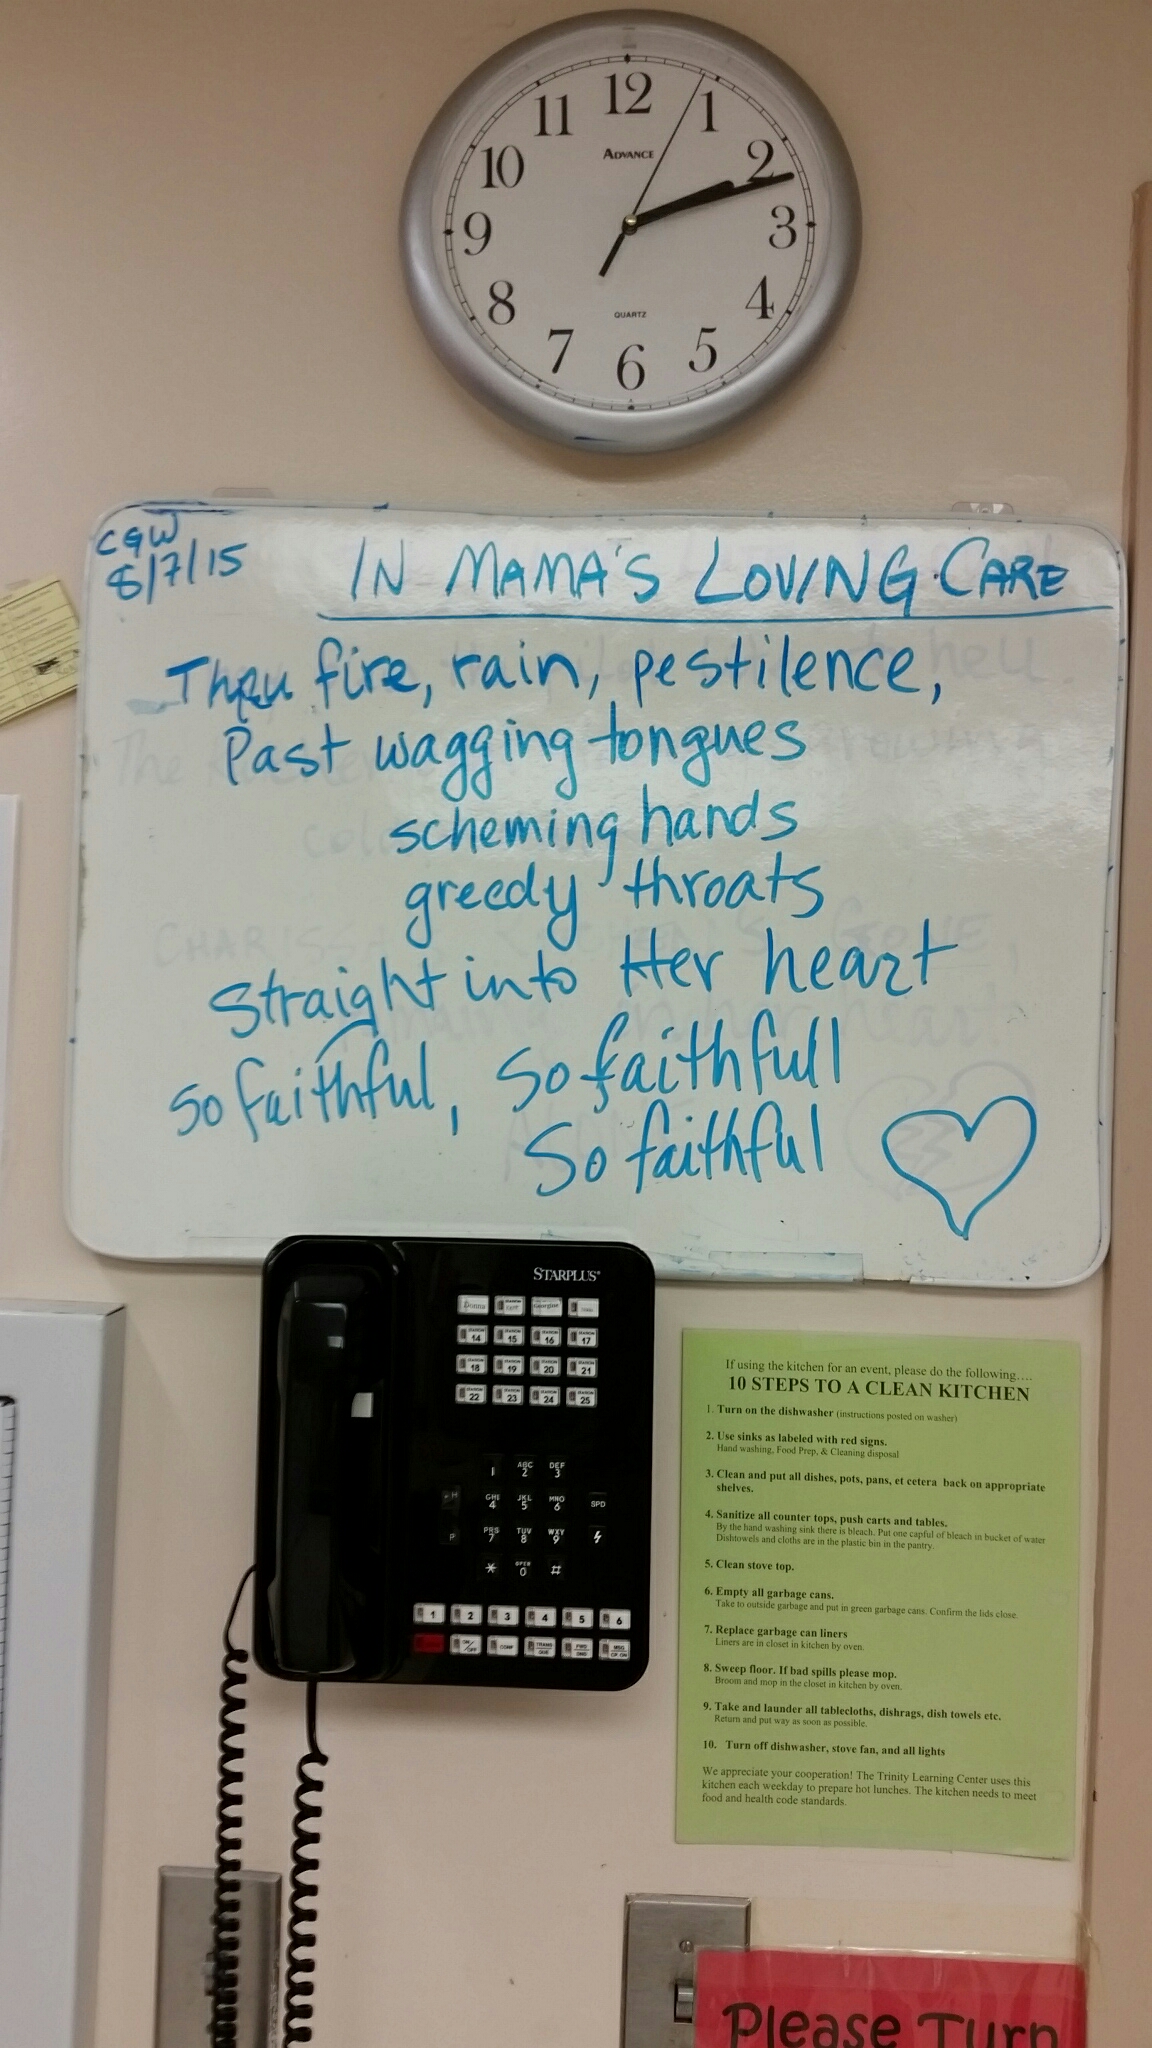 12
11
1
ADVANCE
10
2
9
3
8
4
QUARTZ
7
5
6
CGW
8/7/15
IN MAMA'S LOVING CARE
Thru fire, rain, pestilence,
Past wagging tongues
scheming hands
greedy throats
Straight into Her heart
So faithful, So faithfull
So faithful
STARPLUS
Donna
Georgine
STATION 14 STATION 15 STATION 16 STATION 17
STATION 18 STATION 19 STATION 20 STATION 21
STATION 22 STATION 23 STATION 24 STATION 25
1 ABC 2 DEF 3
GHI 4 JKL 5 MNO 6 SPD
PRS 7 TUV 8 WXY 9
* OPER 0 #
1 2 3 4 5 6
ON/OFF CONF TRANS QUE FWD DND MSG
If using the kitchen for an event, please do the following....
10 STEPS TO A CLEAN KITCHEN
1. Turn on the dishwasher (instructions posted on washer)
2. Use sinks as labeled with red signs.
Hand washing, Food Prep, & Cleaning disposal
3. Clean and put all dishes, pots, pans, et cetera back on appropriate
shelves.
4. Sanitize all counter tops, push carts and tables.
By the hand washing sink there is bleach. Put one capful of bleach in bucket of water
Dishtowels and cloths are in the plastic bin in the pantry.
5. Clean stove top.
6. Empty all garbage cans.
Take to outside garbage and put in green garbage cans. Confirm the lids close.
7. Replace garbage can liners
Liners are in closet in kitchen by oven.
8. Sweep floor. If bad spills please mop.
Broom and mop in the closet in kitchen by oven.
9. Take and launder all tablecloths, dishrags, dish towels etc.
Return and put way as soon as possible.
10. Turn off dishwasher, stove fan, and all lights
We appreciate your cooperation! The Trinity Learning Center uses this
kitchen each weekday to prepare hot lunches. The kitchen needs to meet
food and health code standards.
Please Turn